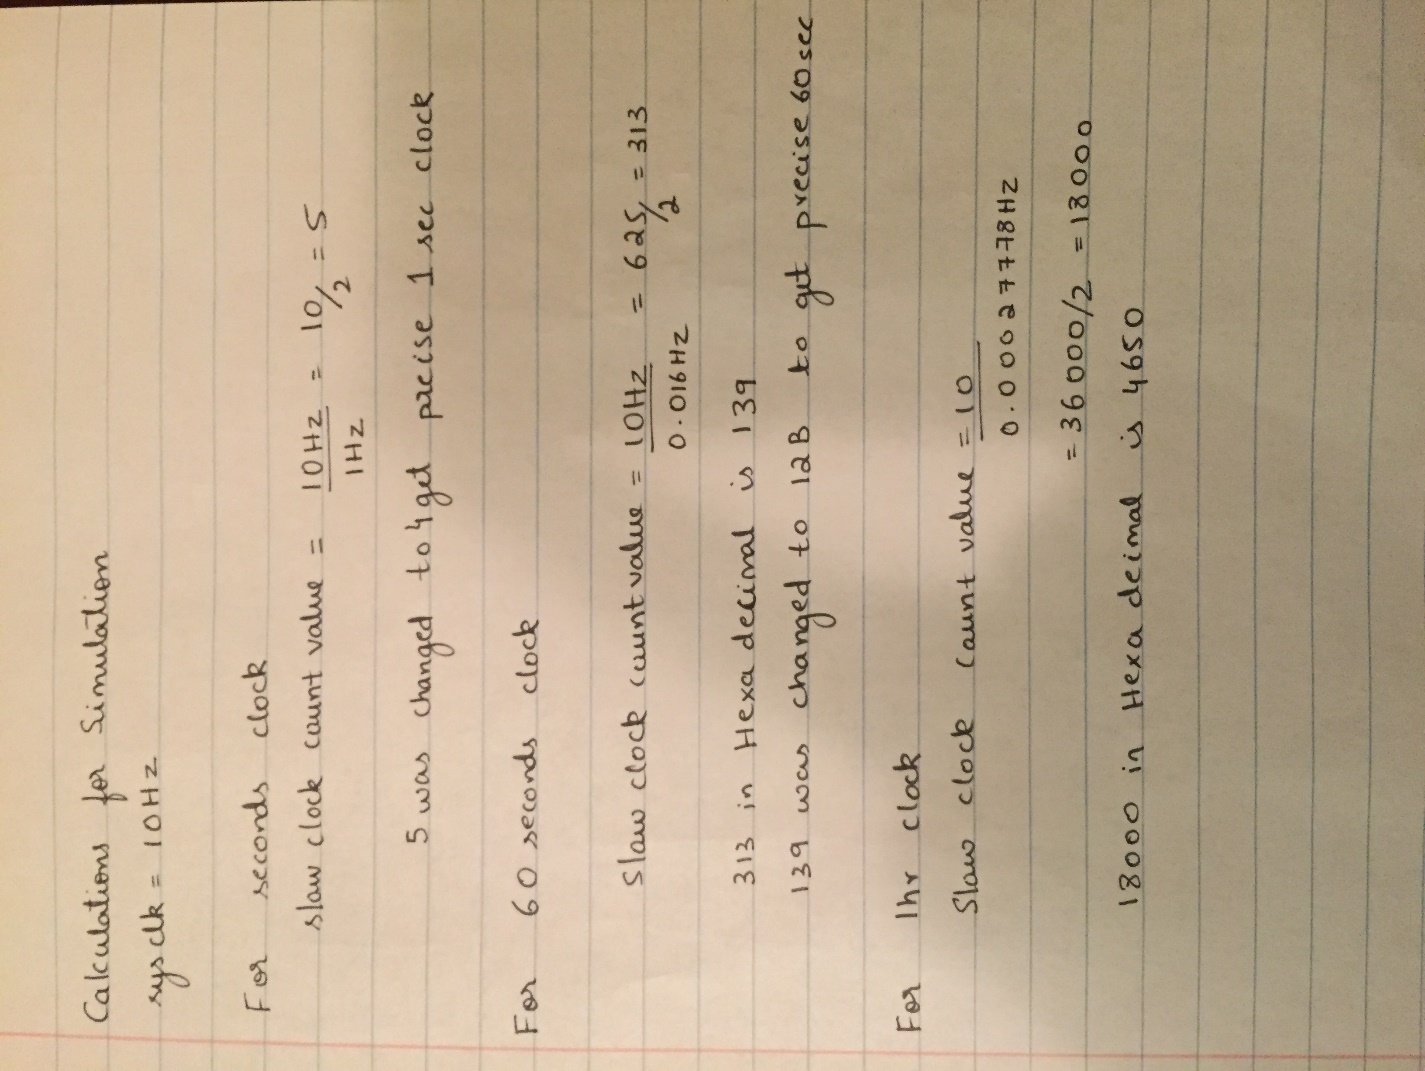 Calculations for Simulation
sysclk = 10Hz
For seconds clock
slow clock count value = 10Hz/1Hz = 10/2 = 5
5 was changed to 4 get precise 1 sec clock
For 60 seconds clock
Slow clock count value = 10Hz/0.016Hz = 625/2 = 313
313 in Hexa decimal is 139
139 was changed to 12B to get precise 60sec
For 1hr clock
Slow clock count value = 10/0.0002778Hz
= 36000/2 = 18000
18000 in Hexa deimal is 4650